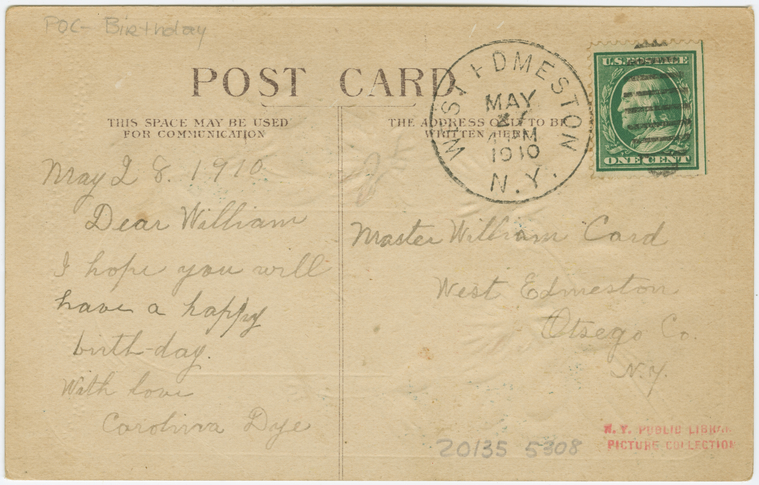 POC- Birthday
POST CARD
THIS SPACE MAY BE USED
FOR COMMUNICATION
THE ADDRESS ONLY TO BE
WRITTEN HERE
WEST EDMESTON
MAY
M
1910
N.Y.
U.S. POSTAGE
ONE CENT
May 28. 1910
Dear William
I hope you will
have a happy
birth-day.
With love
Carolina Dye
Master William Card
West Edmeston
Otsego Co.
N.Y.
20135 5308
N.Y. PUBLIC LIBRARY
PICTURE COLLECTION